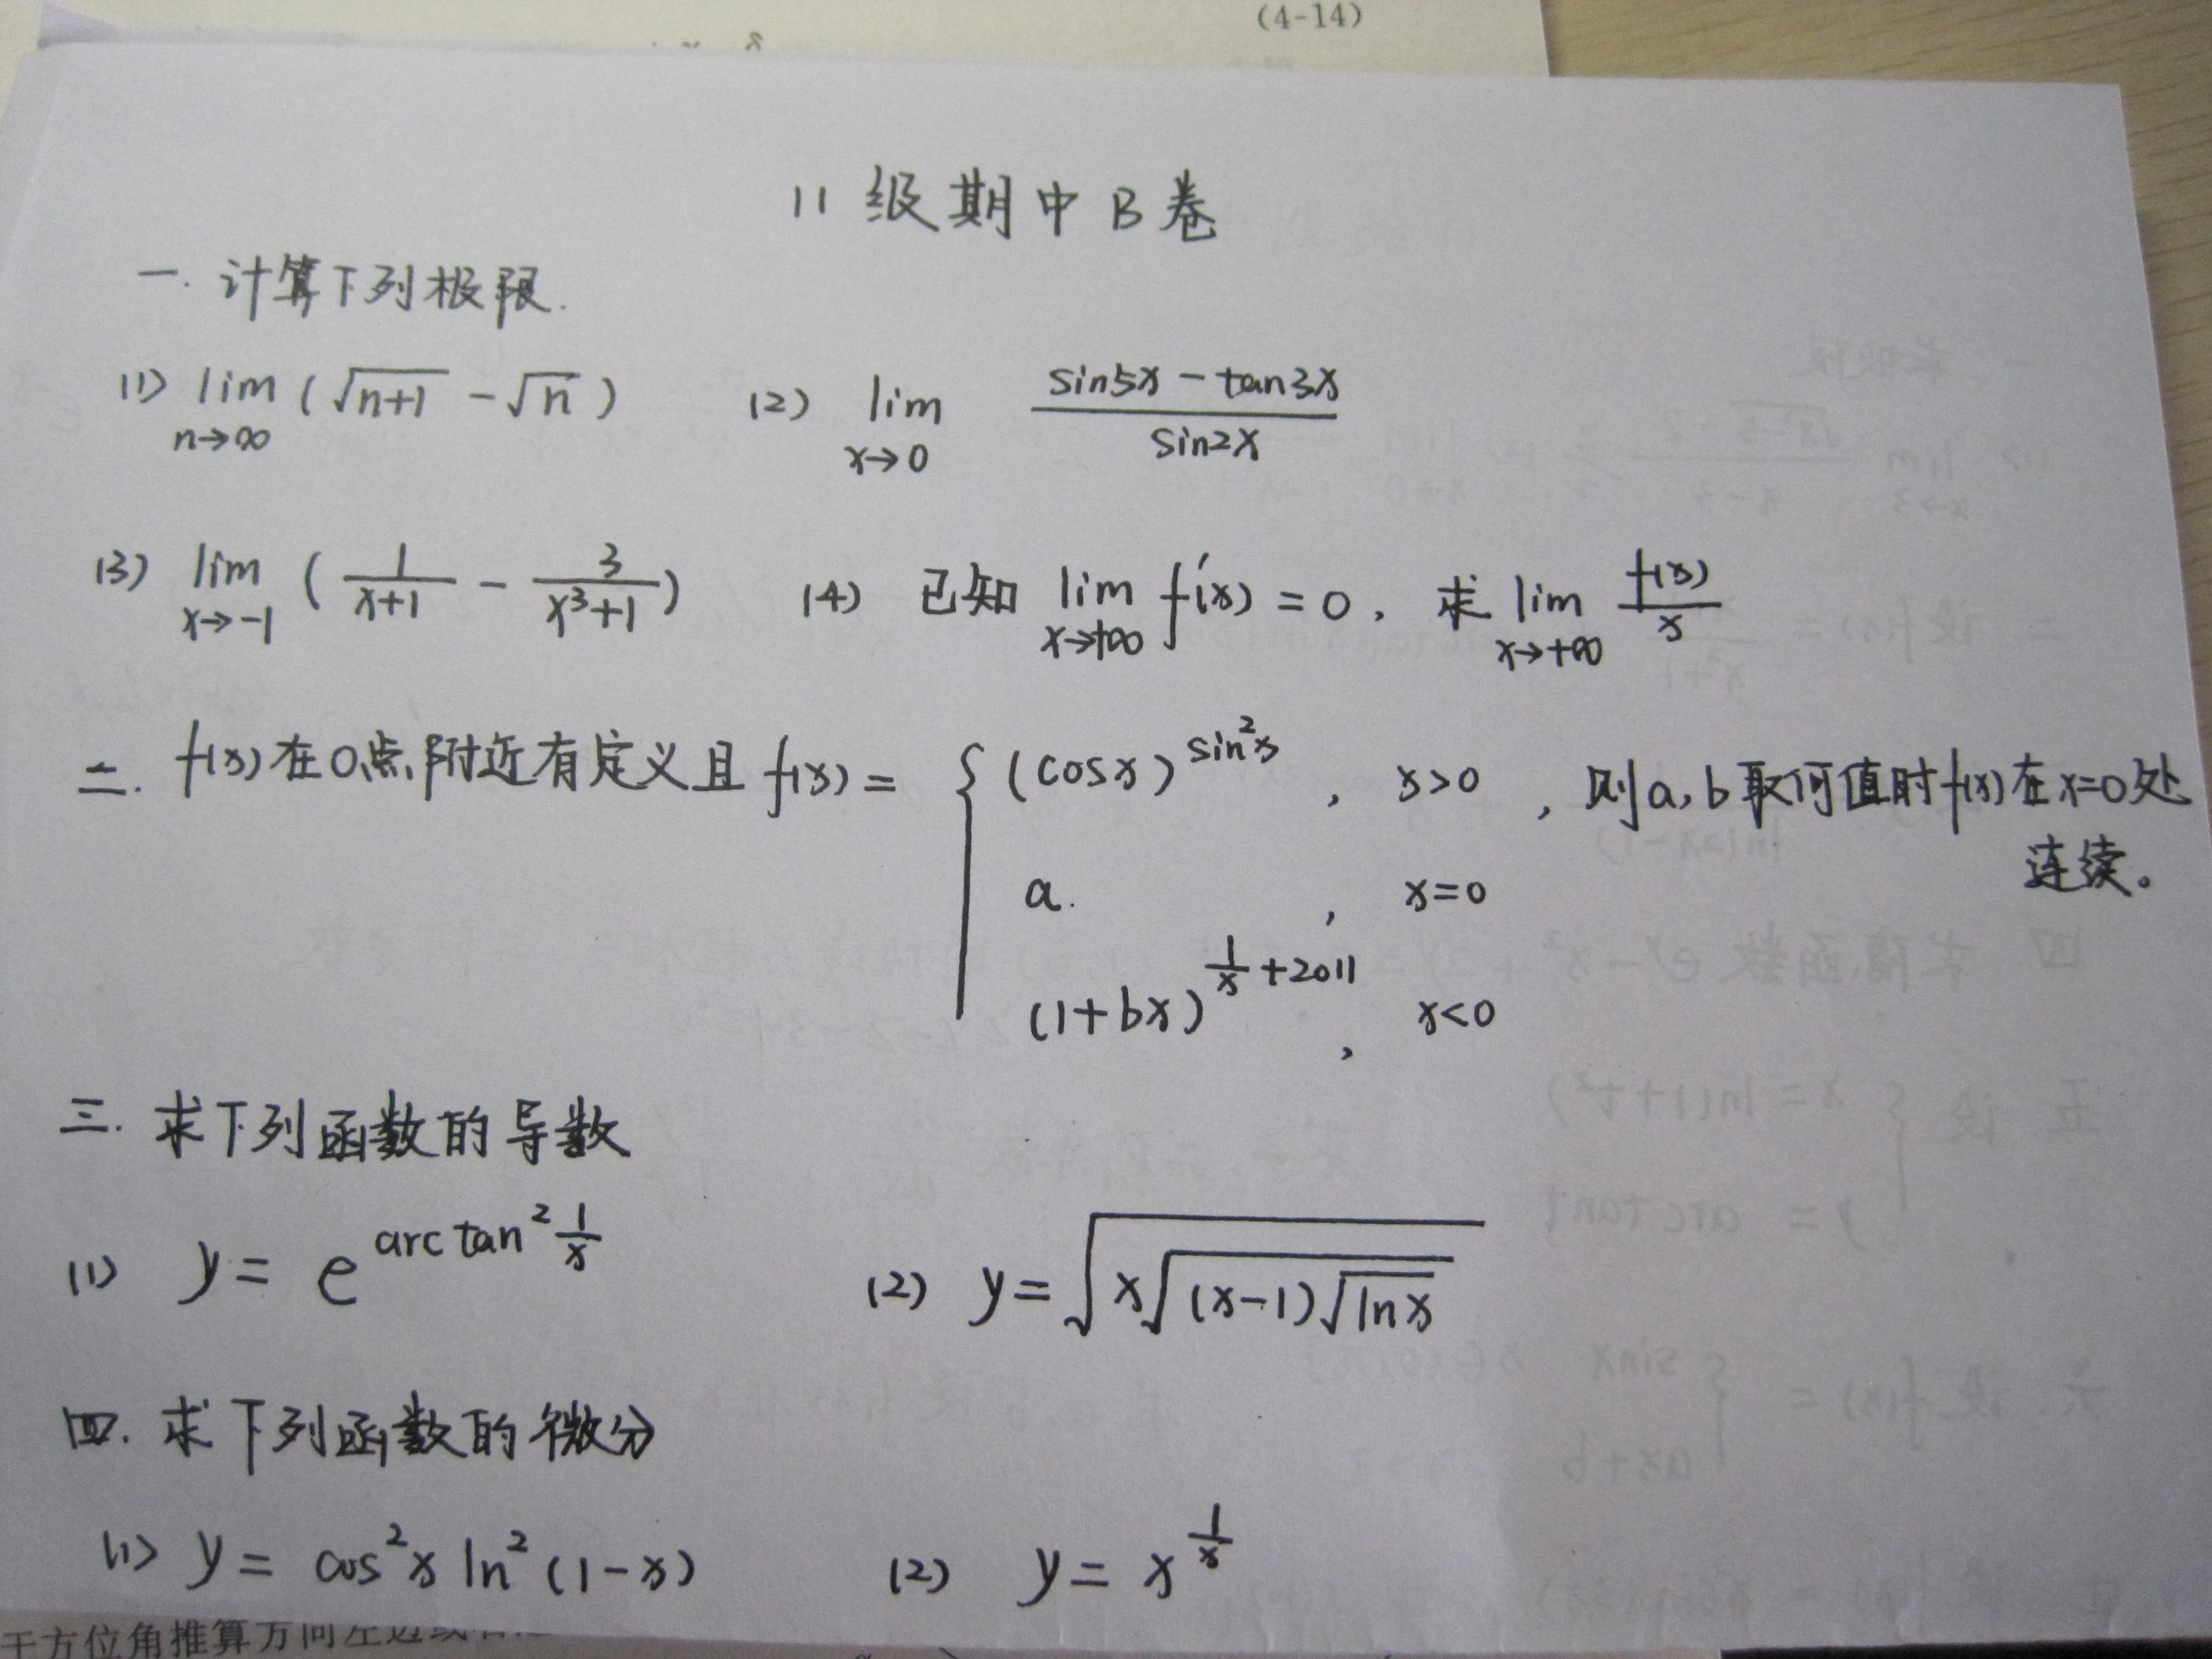 (4-14)
11级期中B卷
一. 计算下列极限.
(1) lim_{n→∞} (√(n+1) - √n) (2) lim_{x→0} (sin5x - tan3x)/(sin2x)
(3) lim_{x→-1} (1/(x+1) - 3/(x³+1)) (4) 已知 lim_{x→+∞} f'(x) = 0, 求 lim_{x→+∞} f(x)/x
二. f(x)在0点附近有定义且 f(x) = { (cosx)^{sin²x}, x>0, 则a,b取何值时f(x)在x=0处
连续。
a. , x=0
(1+bx)^{1/x+2011}, x<0
三. 求下列函数的导数
(1) y = e^{arctan² 1/x} (2) y = √(x√((x-1)√(lnx)))
四. 求下列函数的微分
(1) y = cos²x ln²(1-x) (2) y = x^{1/x}
干方位角推算方向左边或